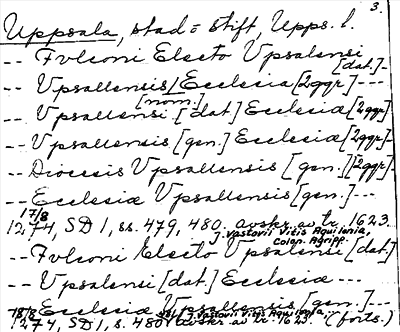 3.
Uppsala, stad = stift, Upps. l.
-- Fvlconi Electo Vpsalensi [dat.] -
-- Vpsallensis Ecclesia [2ggr] ---
[nom.]
-- Vpsallensi [dat.] Ecclesiæ [2ggr]
-- Vpsallensis [gen.] Ecclesiæ [2ggr] -
-- Diocesis Vpsallensis [gen.] [2ggr] -
-- Ecclesiæ Vpsallensis [gen.] ---
17/8
1274, SD 1, ss. 479, 480. avskr. av tr. 1623.
J. Vastovii Vitis Aquilonia,
Colon. Agripp.
-- Fvlconi Electo Vpsalensi [dat.]
-- Vpsallensi [dat.] Ecclesiæ ---
-- Ecclesiæ Vpsallensis [gen.] ---
18/8 J. Vastovii Vitis Aquilonia
1274, SD 1, s. 480 avskr. av tr. 1623. (forts.)